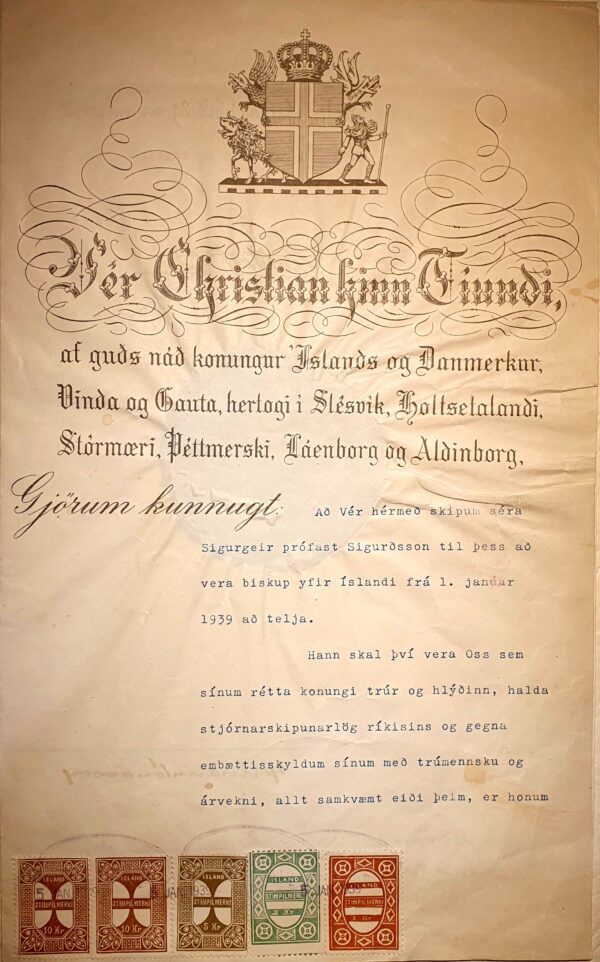 Vér Christian hinn Tiundi,
af guds náð konungur Íslands og Danmerkur,
Vinda og Gauta, hertogi i Slésvik, Holtsetalandi,
Stórmæri, Þéttmerski, Láenborg og Aldinborg,
Gjörum kunnugt: Að Vér hérmeð skipum séra
Sigurgeir prófast Sigurðsson til þess að
vera biskup yfir Íslandi frá 1. janúar
1939 að telja.
Hann skal því vera Oss sem
sínum rétta konungi trúr og hlýðinn, halda
stjórnarskipunarlög ríkisins og gegna
embættisskyldum sínum með trúmennsku og
árvekni, allt samkvæmt eiði þeim, er honum
ISLAND ISLAND ISLAND ISLAND ISLAND
STIMPILMERKI STIMPILMERKI STIMPILMERKI STIMPILMERKI STIMPILMERKI
10 Kr 10 Kr 5 Kr 2 Kr 1 Kr